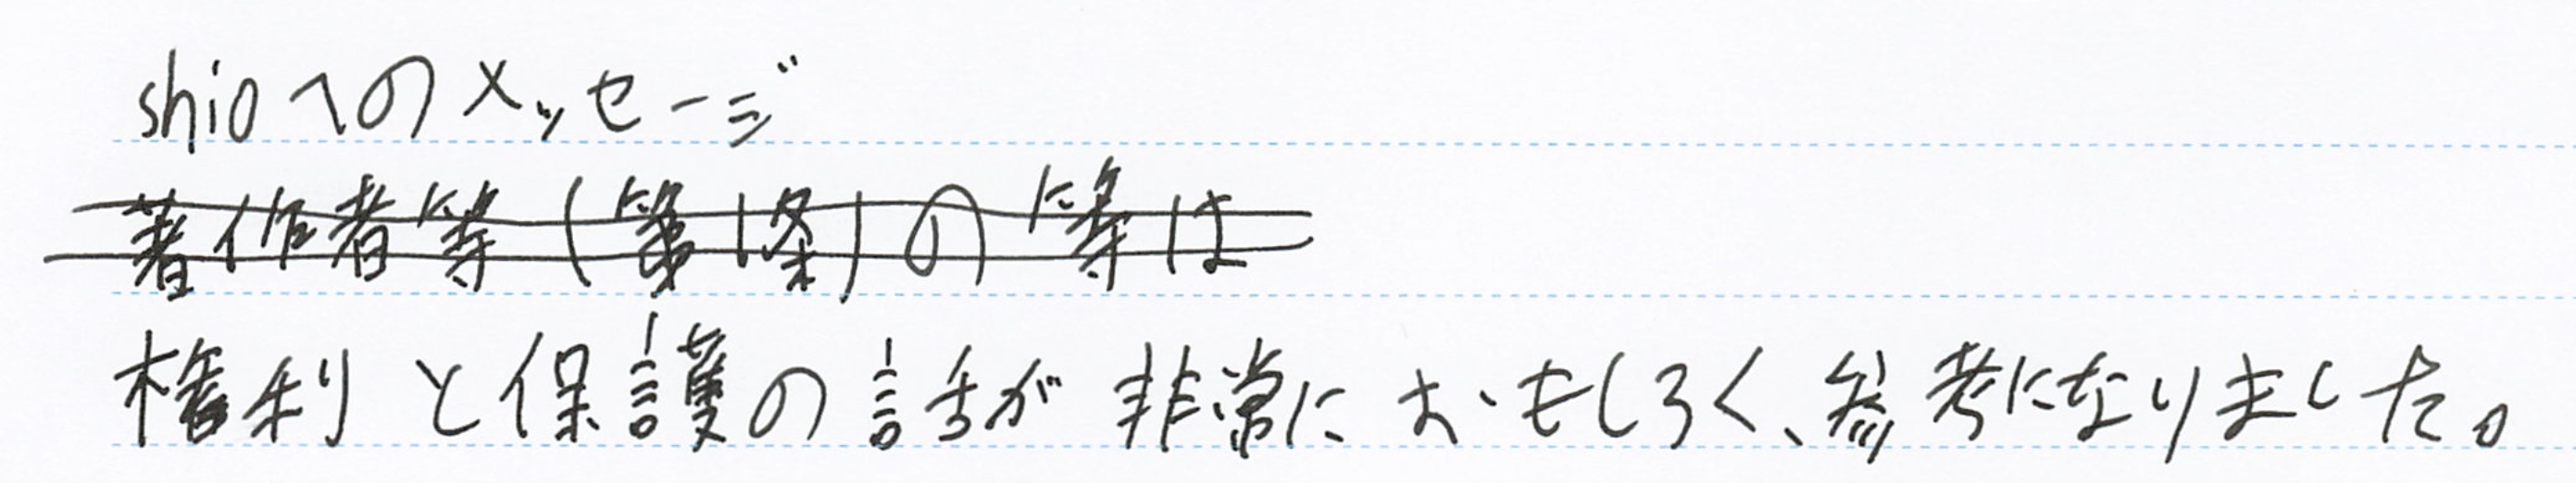 shioへのメッセージ
著作者等(第1条)の等は
権利と保護の話が非常におもしろく、参考になりました。